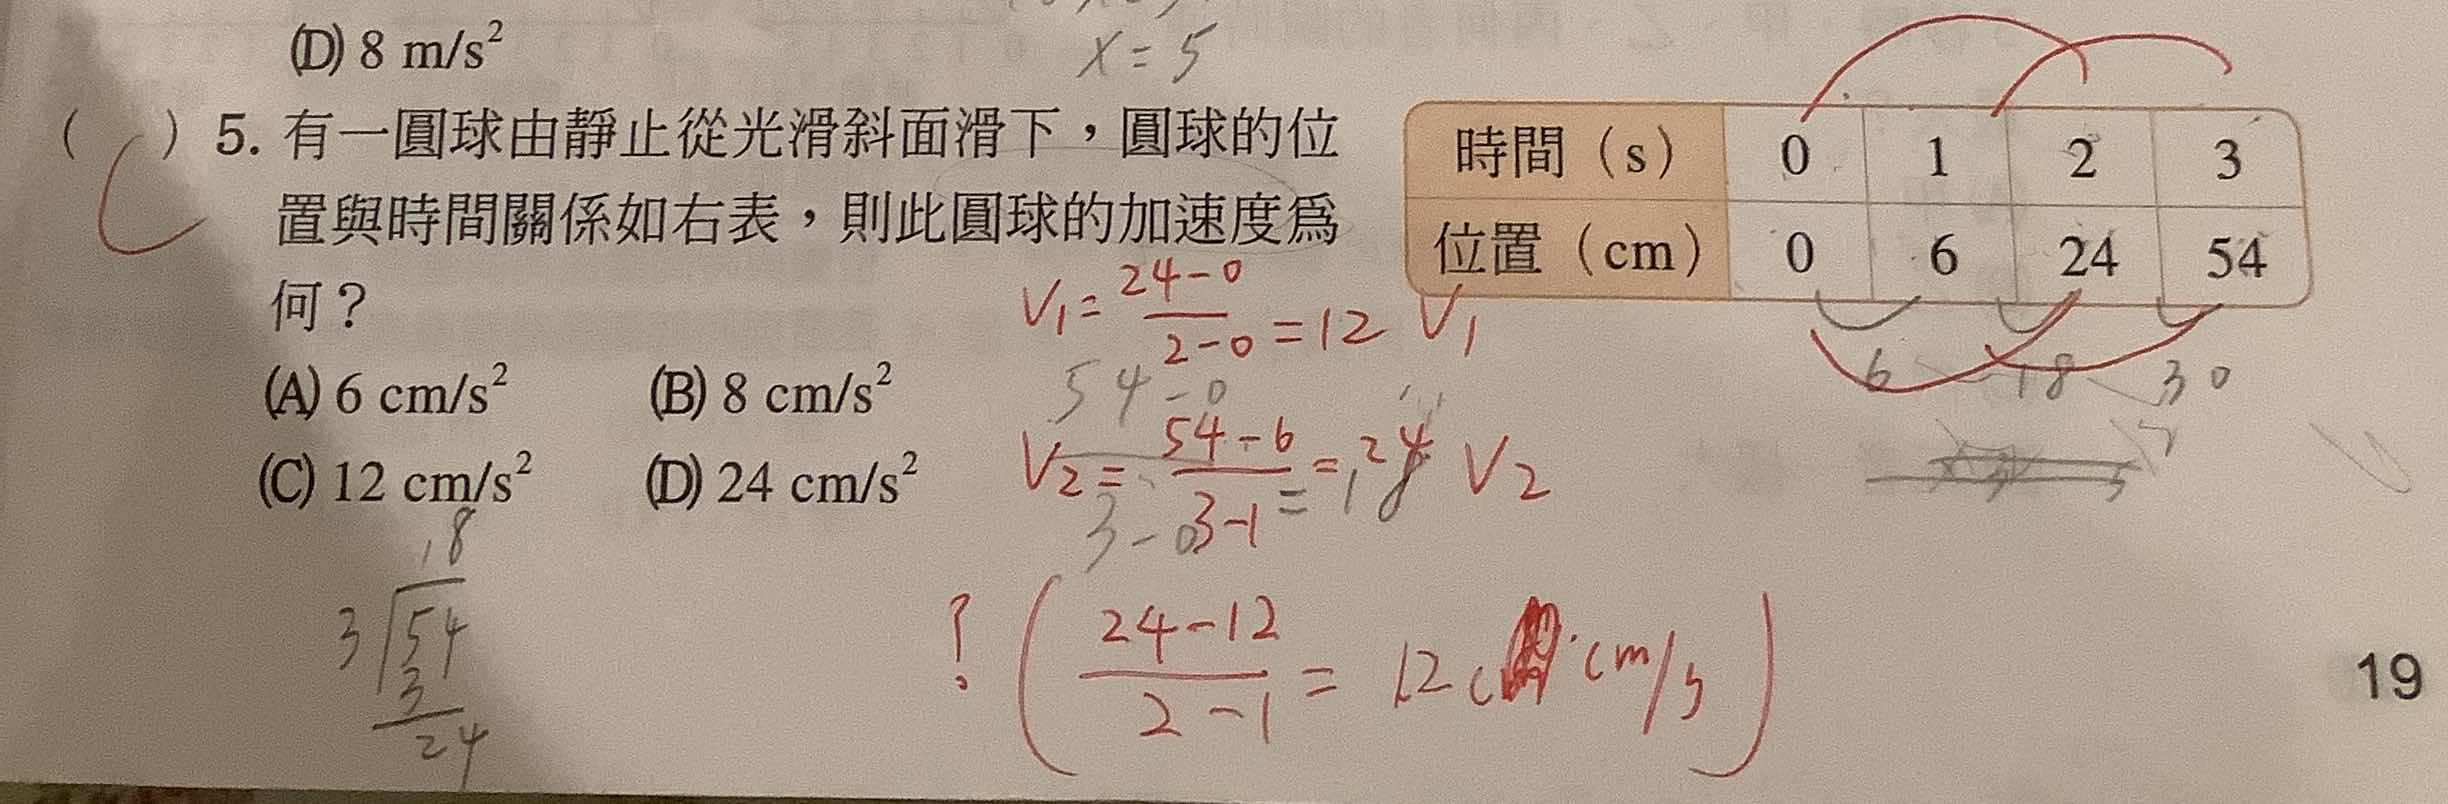 (D) 8 m/s²
x = 5
( C ) 5. 有一圓球由靜止從光滑斜面滑下，圓球的位
置與時間關係如右表，則此圓球的加速度為
何？
時間（s） 0 1 2 3
位置（cm） 0 6 24 54
(A) 6 cm/s² (B) 8 cm/s²
(C) 12 cm/s² (D) 24 cm/s²
V₁ = 24-0 / 2-0 = 12 V₁
54-0
3-0 = 18
V₂ = 54-6 / 3-1 = 24 V₂
6 18 30
18
3 54
3
24
? ( 24-12 / 2-1 = 12 cm/s )
19